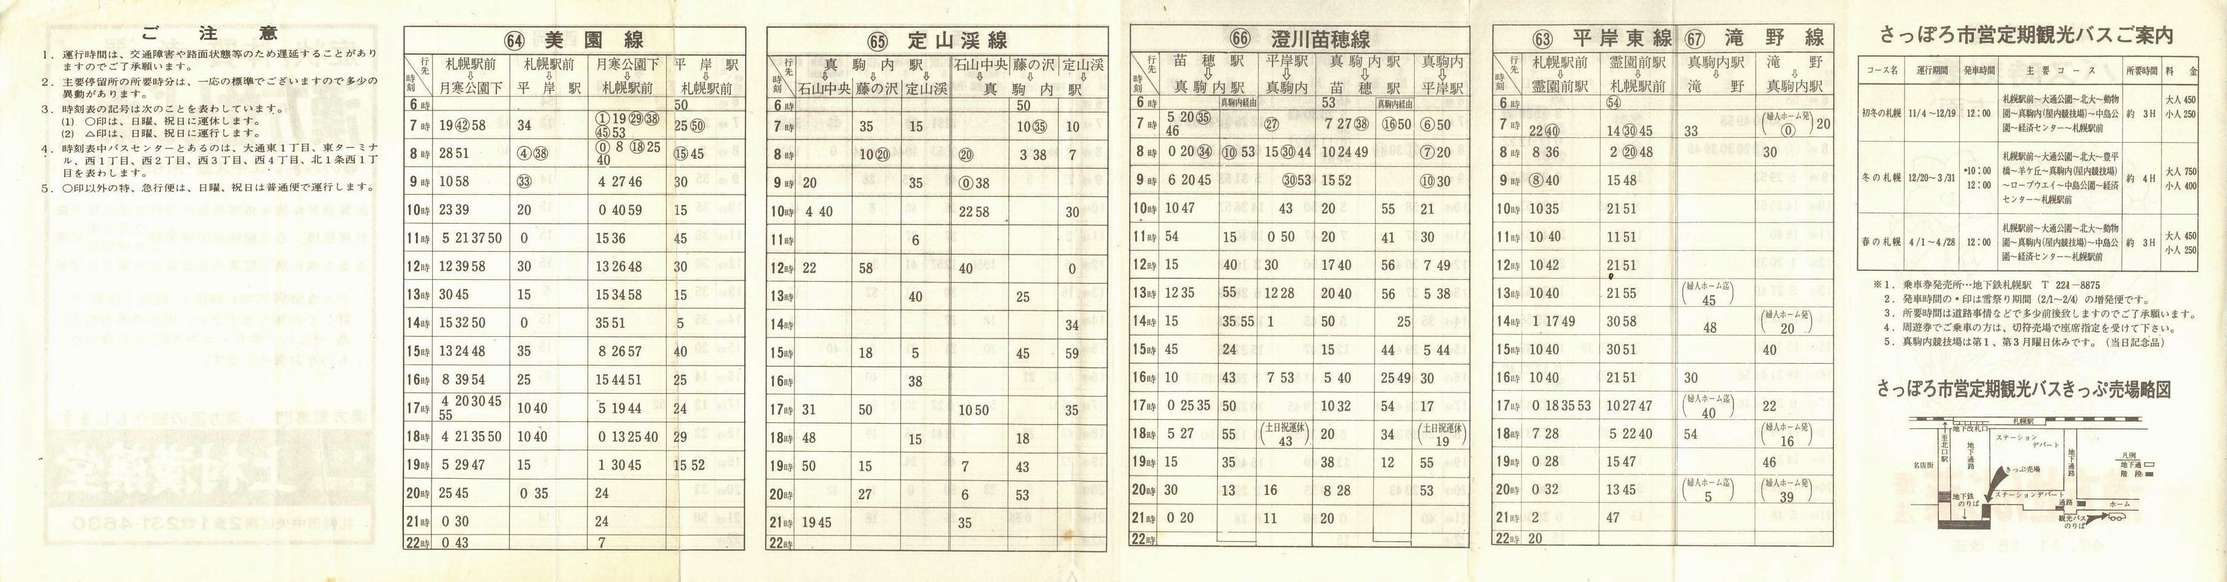 ご注意
1．運行時間は、交通障害や路面状態等のため遅延することがあり
ますのでご了承願います。
2．主要停留所の所要時分は、一応の標準でございますので多少の
異動があります。
3．時刻表の記号は次のことを表わしています。
(1) 〇印は、日曜、祝日に運休します。
(2) △印は、日曜、祝日に運行します。
4．時刻表中バスセンターとあるのは、大通東1丁目、東ターミナ
ル、西1丁目、西2丁目、西3丁目、西4丁目、北1条西1丁
目を表わします。
5．〇印以外の特、急行便は、日曜、祝日は普通便で運行します。
64 美園線
行先 時刻 札幌駅前⇩月寒公園下 札幌駅前⇩平岸駅 月寒公園下⇩札幌駅前 平岸駅⇩札幌駅前
6時 50
7時 19㊷58 34 ①19㉙㊳㊺53 25㊿
8時 28 51 ④㊳ ⓪8⑱25 40 ⑮45
9時 10 58 ㉝ 4 27 46 30
10時 23 39 20 0 40 59 15
11時 5 21 37 50 0 15 36 45
12時 12 39 58 30 13 26 48 30
13時 30 45 15 15 34 58 15
14時 15 32 50 0 35 51 5
15時 13 24 48 35 8 26 57 40
16時 8 39 54 25 15 44 51 25
17時 4 20 30 45 55 10 40 5 19 44 24
18時 4 21 35 50 10 40 0 13 25 40 29
19時 5 29 47 15 1 30 45 15 52
20時 25 45 0 35 24
21時 0 30 24
22時 0 43 7
65 定山渓線
行先 時刻 真駒内駅⇩石山中央 藤の沢 定山渓 石山中央 藤の沢 定山渓⇩真駒内駅
6時 50
7時 35 15 10㉟ 10
8時 10⑳ ⑳ 3 38 7
9時 20 35 ⓪38
10時 4 40 22 58 30
11時 6
12時 22 58 40 0
13時 40 25
14時 34
15時 18 5 45 59
16時 38
17時 31 50 10 50 35
18時 48 15 18
19時 50 15 7 43
20時 27 6 53
21時 19 45 35
22時
66 澄川苗穂線
行先 時刻 苗穂駅⇩真駒内駅 平岸駅⇩真駒内 真駒内駅⇩苗穂駅 真駒内⇩平岸駅
6時 真駒内経由 53 真駒内経由
7時 5 20㉟ 46 ㉗ 7 27㊳ ⑯50 ⑥50
8時 0 20㉞ ⑩53 15㉚44 10 24 49 ⑦20
9時 6 20 45 ㉚53 15 52 ⑩30
10時 10 47 43 20 55 21
11時 54 15 0 50 20 41 30
12時 15 40 30 17 40 56 7 49
13時 12 35 55 12 28 20 40 56 5 38
14時 15 35 55 1 50 25
15時 45 24 15 44 5 44
16時 10 43 7 53 5 40 25 49 30
17時 0 25 35 50 10 32 54 17
18時 5 27 55 (土日祝運休)43 20 34 (土日祝運休)19
19時 15 35 38 12 55
20時 30 13 16 8 28 53
21時 0 20 11 20
22時
63 平岸東線 67 滝野線
行先 時刻 札幌駅前⇩霊園前駅 霊園前駅⇩札幌駅前 真駒内駅⇩滝野 滝野⇩真駒内駅
6時 54
7時 22㊵ 14㉚45 33 (婦人ホーム発)⓪ 20
8時 8 36 2⑳48 30
9時 ⑧40 15 48
10時 10 35 21 51
11時 10 40 11 51
12時 10 42 21 51
13時 10 40 21 55 (婦人ホーム迄)45
14時 1 17 49 30 58 48 (婦人ホーム発)20
15時 10 40 30 51 40
16時 10 40 21 51 30
17時 0 18 35 53 10 27 47 (婦人ホーム迄)40 22
18時 7 28 5 22 40 54 (婦人ホーム発)16
19時 0 28 15 47 46
20時 0 32 13 45 (婦人ホーム迄)5 (婦人ホーム発)39
21時 2 47
22時 20
さっぽろ市営定期観光バスご案内
コース名 運行期間 発車時間 主要コース 所要時間 料金
初冬の札幌 11/4～12/19 12：00 札幌駅前～大通公園～北大～動物
園～真駒内(屋内競技場)～中島公
園～経済センター～札幌駅前 約3H 大人450 小人250
冬の札幌 12/20～3/31 •10：00 12：00 札幌駅前～大通公園～北大～豊平
橋～羊ケ丘～真駒内(屋内競技場)
～ロープウエイ～中島公園～経済
センター～札幌駅前 約4H 大人750 小人400
春の札幌 4/1～4/28 12：00 札幌駅前～大通公園～北大～動物
園～真駒内(屋内競技場)～中島公
園～経済センター～札幌駅前 約3H 大人450 小人250
※1．乗車券発売所…地下鉄札幌駅 T 224－8875
2．発車時間の・印は雪祭り期間(2/1～2/4)の増発便です。
3．所要時間は道路事情などで多少前後致しますのでご了承願います。
4．周遊券でご乗車の方は、切符売場で座席指定を受けて下さい。
5．真駒内競技場は第1、第3月曜日休みです。(当日記念品)
さっぽろ市営定期観光バスきっぷ売場略図
札幌駅
地下改札口
至北口駅
地下通路
ステーション
デパート
名店街
きっぷ売場
地下通路
凡例
地下通
階段
地下鉄
のりば
ステーションデパート
通路
ホーム
観光バス
のりば